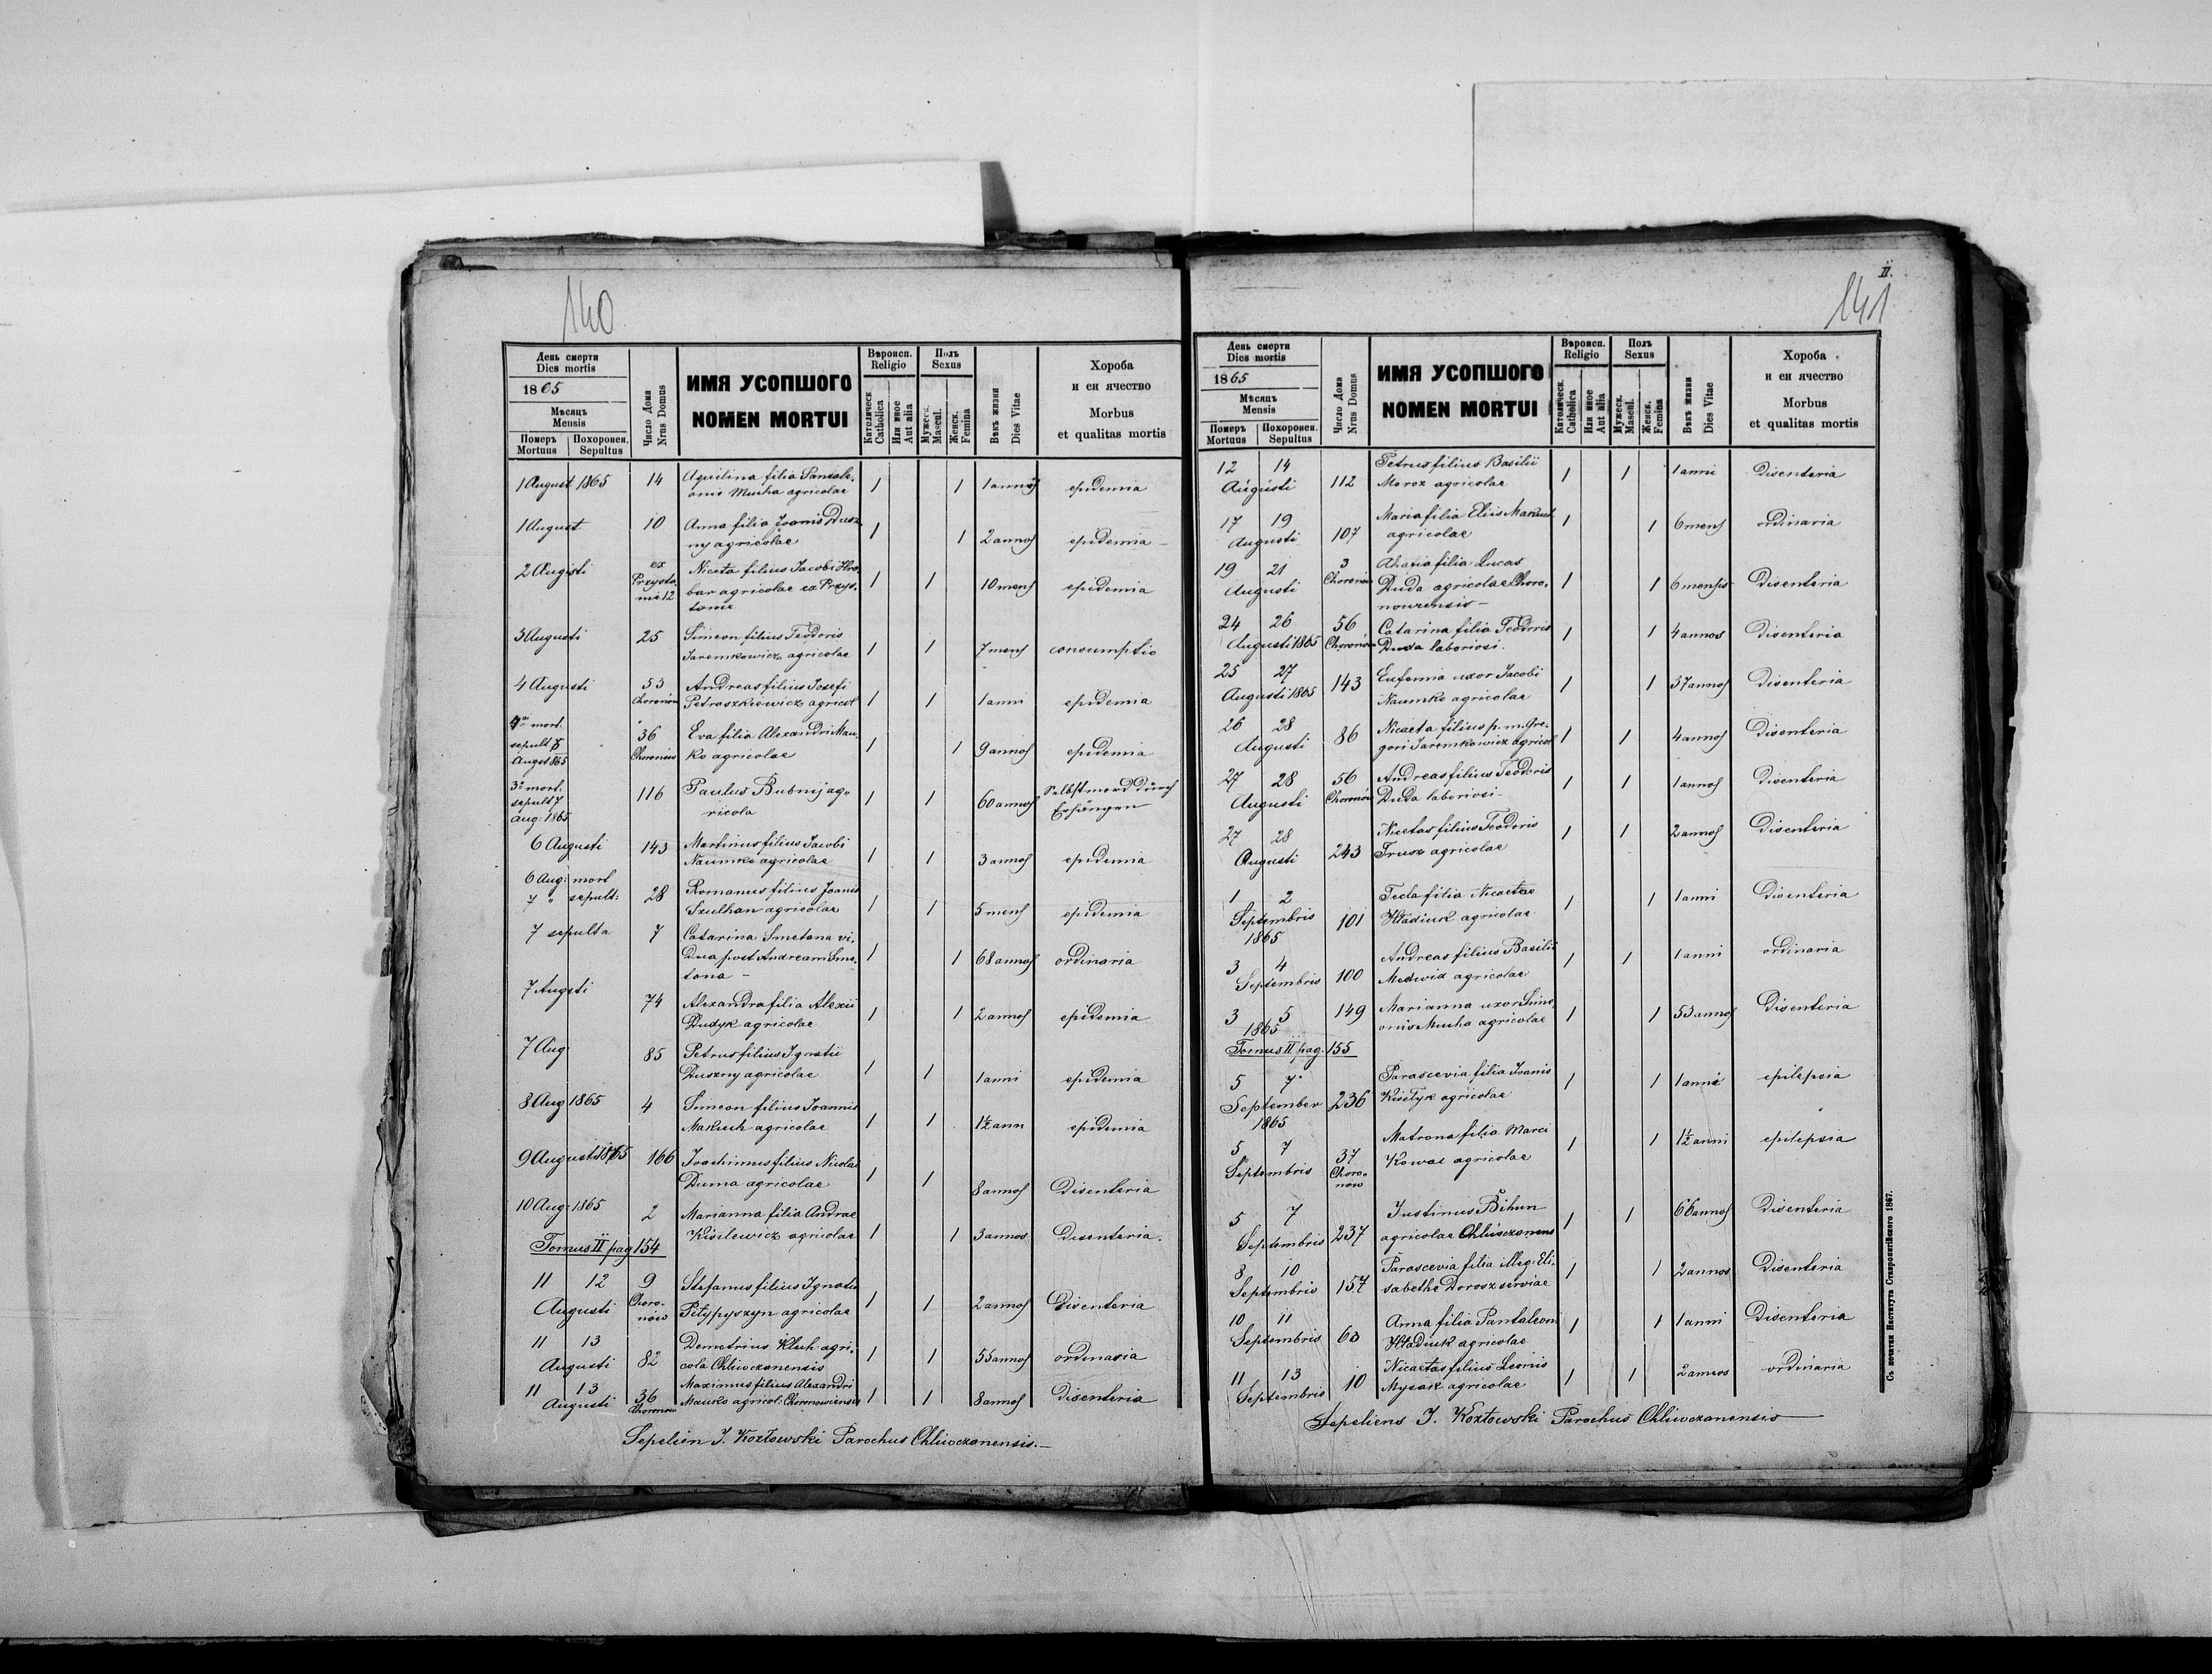 140
День смерти
Dies mortis
1865
Мѣсяцъ
Mensis
Померъ
Mortuus
Похоронен.
Sepultus
Число Дома
Nrus Domus
ИМЯ УСОПШОГО
NOMEN MORTUI
Вѣроисп.
Religio
Католическ
Catholica
Или иное
Aut alia
Полъ
Sexus
Мужеск.
Mascul.
Женск.
Femina
Вѣкъ жизни
Dies Vitae
Хороба
и еи ячество
Morbus
et qualitas mortis
1 August 1865 14 Aquilina filia Pantale-
onis Mucha agricolae 1 1 1 annos epidemia
1 August 10 Anna filia Joanis Dusz-
ny agricolae 1 1 2 annos epidemia
2 Augusti ex Przysta-
nie 12 Niceta filius Jacobi Hro-
bar agricolae ex Przys-
tanie 1 1 10 mens epidemia
3 Augusti 25 Simeon filius Teodoris
Jaremkowicz agricolae 1 1 7 mens consumptio
4 Augusti 53
Choronów Andreas filius Josefi
Petraszkiewicz agricol 1 1 1 anni epidemia
mort.
sepult 8
August 865 36
Choronów Eva filia Alexandri Mau-
ko agricolae 1 1 9 annos epidemia
3ª mort.
sepult 7
Aug: 1865 116 Paulus Bubnij ag-
ricola 1 1 60 annos Selbstmord durch
Erhängen
6 Augusti 143 Martinus filius Jacobi
Naumko agricolae 1 1 3 annos epidemia
6 Aug: mort
7 " sepult: 28 Romanus filius Joanis
Szulhan agricolae 1 1 5 mens epidemia
7 sepulta 7 Catarina Smetana vi-
dua post Andream Sme-
tana – 1 1 68 annos ordinaria
7 Augsti 74 Alexandra filia Alexii
Dudyk agricolae 1 1 2 annos epidemia
7 Aug 85 Petrus filius Ignatii
Duszny agricolae 1 1 1 anni epidemia
8 Aug 1865 4 Simeon filius Joannis
Makuch agricolae 1 1 1½ ann epidemia
9 Augusti 1865 166 Joachimus filius Nicolai
Duma agricolae 1 1 8 annos Disenteria
10 Aug: 1865 2 Marianna filia Andrae
Kisilewicz agricolae 1 1 3 annos Disenteria.
Tomus II pag 154
11 12
Augusti 9
Choro-
nów Stefanus filius Ignatii
Pitypyszyn agricolae 1 1 2 annos Disenteria
11 13
Augusti 82 Demetrius Kluh agri-
cola Chliwczanensis 1 1 55 annos ordinaria
11 13
Augusti 36
Choronow Maximus filius Alexandri
Mauko agricol: Choronowiensis 1 1 8 annos Disenteria
Sepelien J. Kozłowski Parochus Chliwczanensis.–
II.
141
День смерти
Dies mortis
1865
Мѣсяцъ
Mensis
Померъ
Mortuus
Похоронен.
Sepultus
Число Дома
Nrus Domus
ИМЯ УСОПШОГО
NOMEN MORTUI
Вѣроисп.
Religio
Католическ.
Catholica
Или иное
Aut alia
Полъ
Sexus
Мужеск.
Mascul.
Женск.
Femina
Вѣкъ жизни
Dies Vitae
Хороба
и еи ячество
Morbus
et qualitas mortis
12 14
Augusti 112 Petrus filius Basilii
Moroz agricolae 1 1 1 anni Disenteria
17 19
Augusti 107 Maria filia Eliis Makuch
agricolae 1 1 6 mens ordinaria
19 21
Augusti 3
Choronów filia Lucas
Duda agricolae Choro-
1 1 6 mensis Disenteria
24 26
Augusti 1865 56
Choronów Catarina filia Teodoris
Duda laboriosi. 1 1 4 annos Disenteria
25 27
Augusti 1865 143 Eufemia uxor Jacobi
Naumko agricolae 1 1 37 annos Disenteria
26 28
Augusti 86 Nicaeta filius p. m. Gre-
gori Jaremkowicz agricol 1 1 4 annos Disenteria
27 28
Augusti 56
Choronów Andreas filius Teodoris
Duda laboriosi– 1 1 1 annos Disenteria
27 28
Augusti 243 Nicetas filius Teodoris
Trusz agricolae 1 1 2 annos Disenteria
1 2
Septembris
1865 101 Tecla filia Nicaetae
Hładiuk agricolae 1 1 1 anni Disenteria
3 4
Septembris 100 Andreas filius Basilii
Medwid agricolae 1 1 1 anni ordinaria
3 5
1865 149 Marianna uxor Sime-
onis Mucha agricolae 1 1 53 annos Disenteria
Tomus II pag. 155
5 7
September
1865 236 Parascevia filia Joanis
Kisełyk agricolae 1 1 1 anni epilepsia
5 7
Septembris 37
Choro-
now Matrona filia Marci
Kowal agricolae 1 1 1½ anni epilepsia
5 7
Septembris 237 Justinus Bihun
agricolae Chliwczanens 1 1 66 annos Disenteria
8 10
Septembris 157 Parascevia filia illeg: Eli-
sabethe Dorosz serviae 1 1 2 annos Disenteria
10 11
Septembris 60 Anna filia Pantaleoni
Hładiuk agricolae 1 1 1 anni Disenteria
11 13
Septembris 10 Nicaetas filius Leonis
Mysak agricolae 1 1 2 annos ordinaria
Sepeliens J. Kozłowski Parochus Chliwczanensis
Съ печатни Института Ставропигійского 1867.